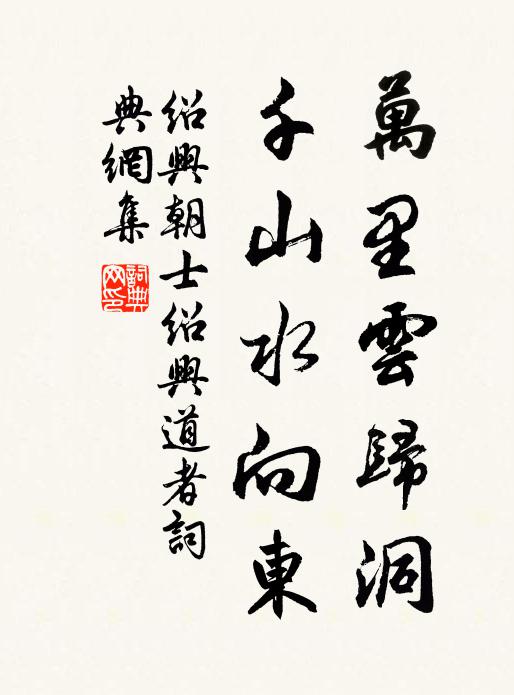 萬里雲歸洞
千山水向東
紹興朝士紹興道者詞
典網集
詞典
网印